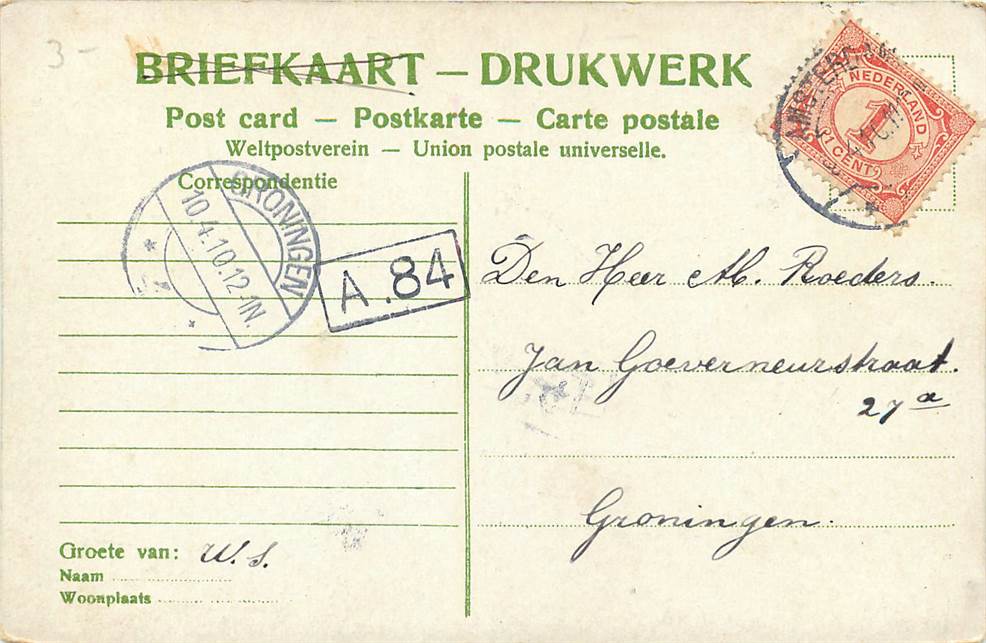 3-
BRIEFKAART — DRUKWERK
Post card — Postkarte — Carte postale
Weltpostverein — Union postale universelle.
NEDERLAND
1
1 CENT
Correspondentie
GRONINGEN
10.4.10.12-1N.
A.84
Den Heer M. Roeders.
Jan Goeverneurstraat.
27a
Groningen.
Groete van: W.S.
Naam
Woonplaats